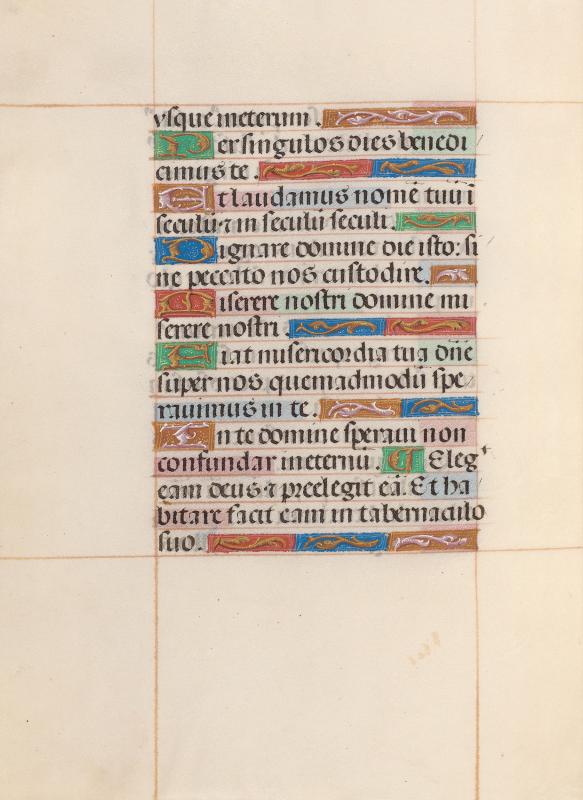 vsque ineternum.
Per singulos dies benedi
cimus te.
Et laudamus nomē tuū i
seculū ⁊ in seculū seculi.
Dignare domine die isto: si
ne peccato nos custodire.
Miserere nostri domine mi
serere nostri.
Fiat misericordia tua dn̄e
super nos quemadmodū spe
rauimus in te.
In te domine speraui non
confundar ineternū. V Eleg'
eam deus ⁊ preelegit eā. Et ha
bitare facit eam in tabernaculo
suo.